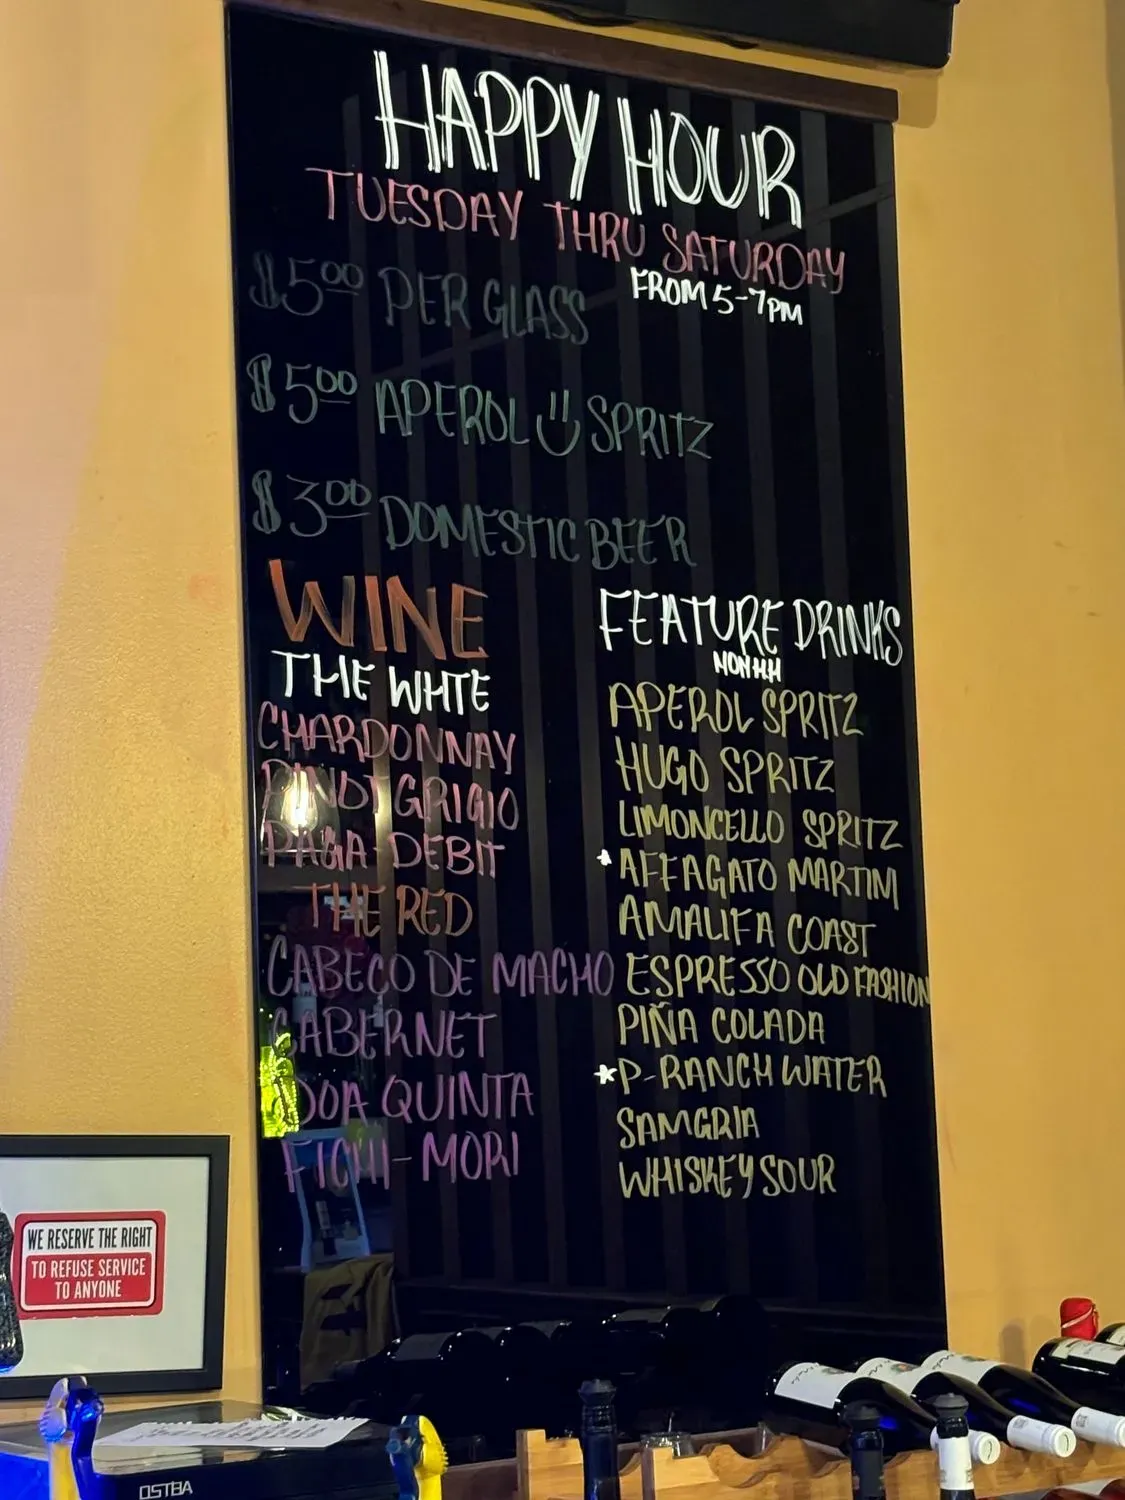 HAPPY HOUR
TUESDAY THRU SATURDAY
FROM 5-7PM
$5.00 PER GLASS
$5.00 APEROL SPRITZ
$3.00 DOMESTIC BEER
WINE
THE WHTE
CHARDONNAY
PINOT GRIGIO
PAGA-DEBIT
THE RED
CABECO DE MACHO
CABERNET
DOA QUINTA
FICHI-MORI
FEATURE DRINKS
NON HH
APEROL SPRITZ
HUGO SPRITZ
LIMONCELLO SPRITZ
*AFFAGATO MARTINI
AMALIFA COAST
ESPRESSO OLD FASHION
PIÑA COLADA
*P-RANCH WATER
SAMGRIA
WHISKEY SOUR
WE RESERVE THE RIGHT
TO REFUSE SERVICE
TO ANYONE